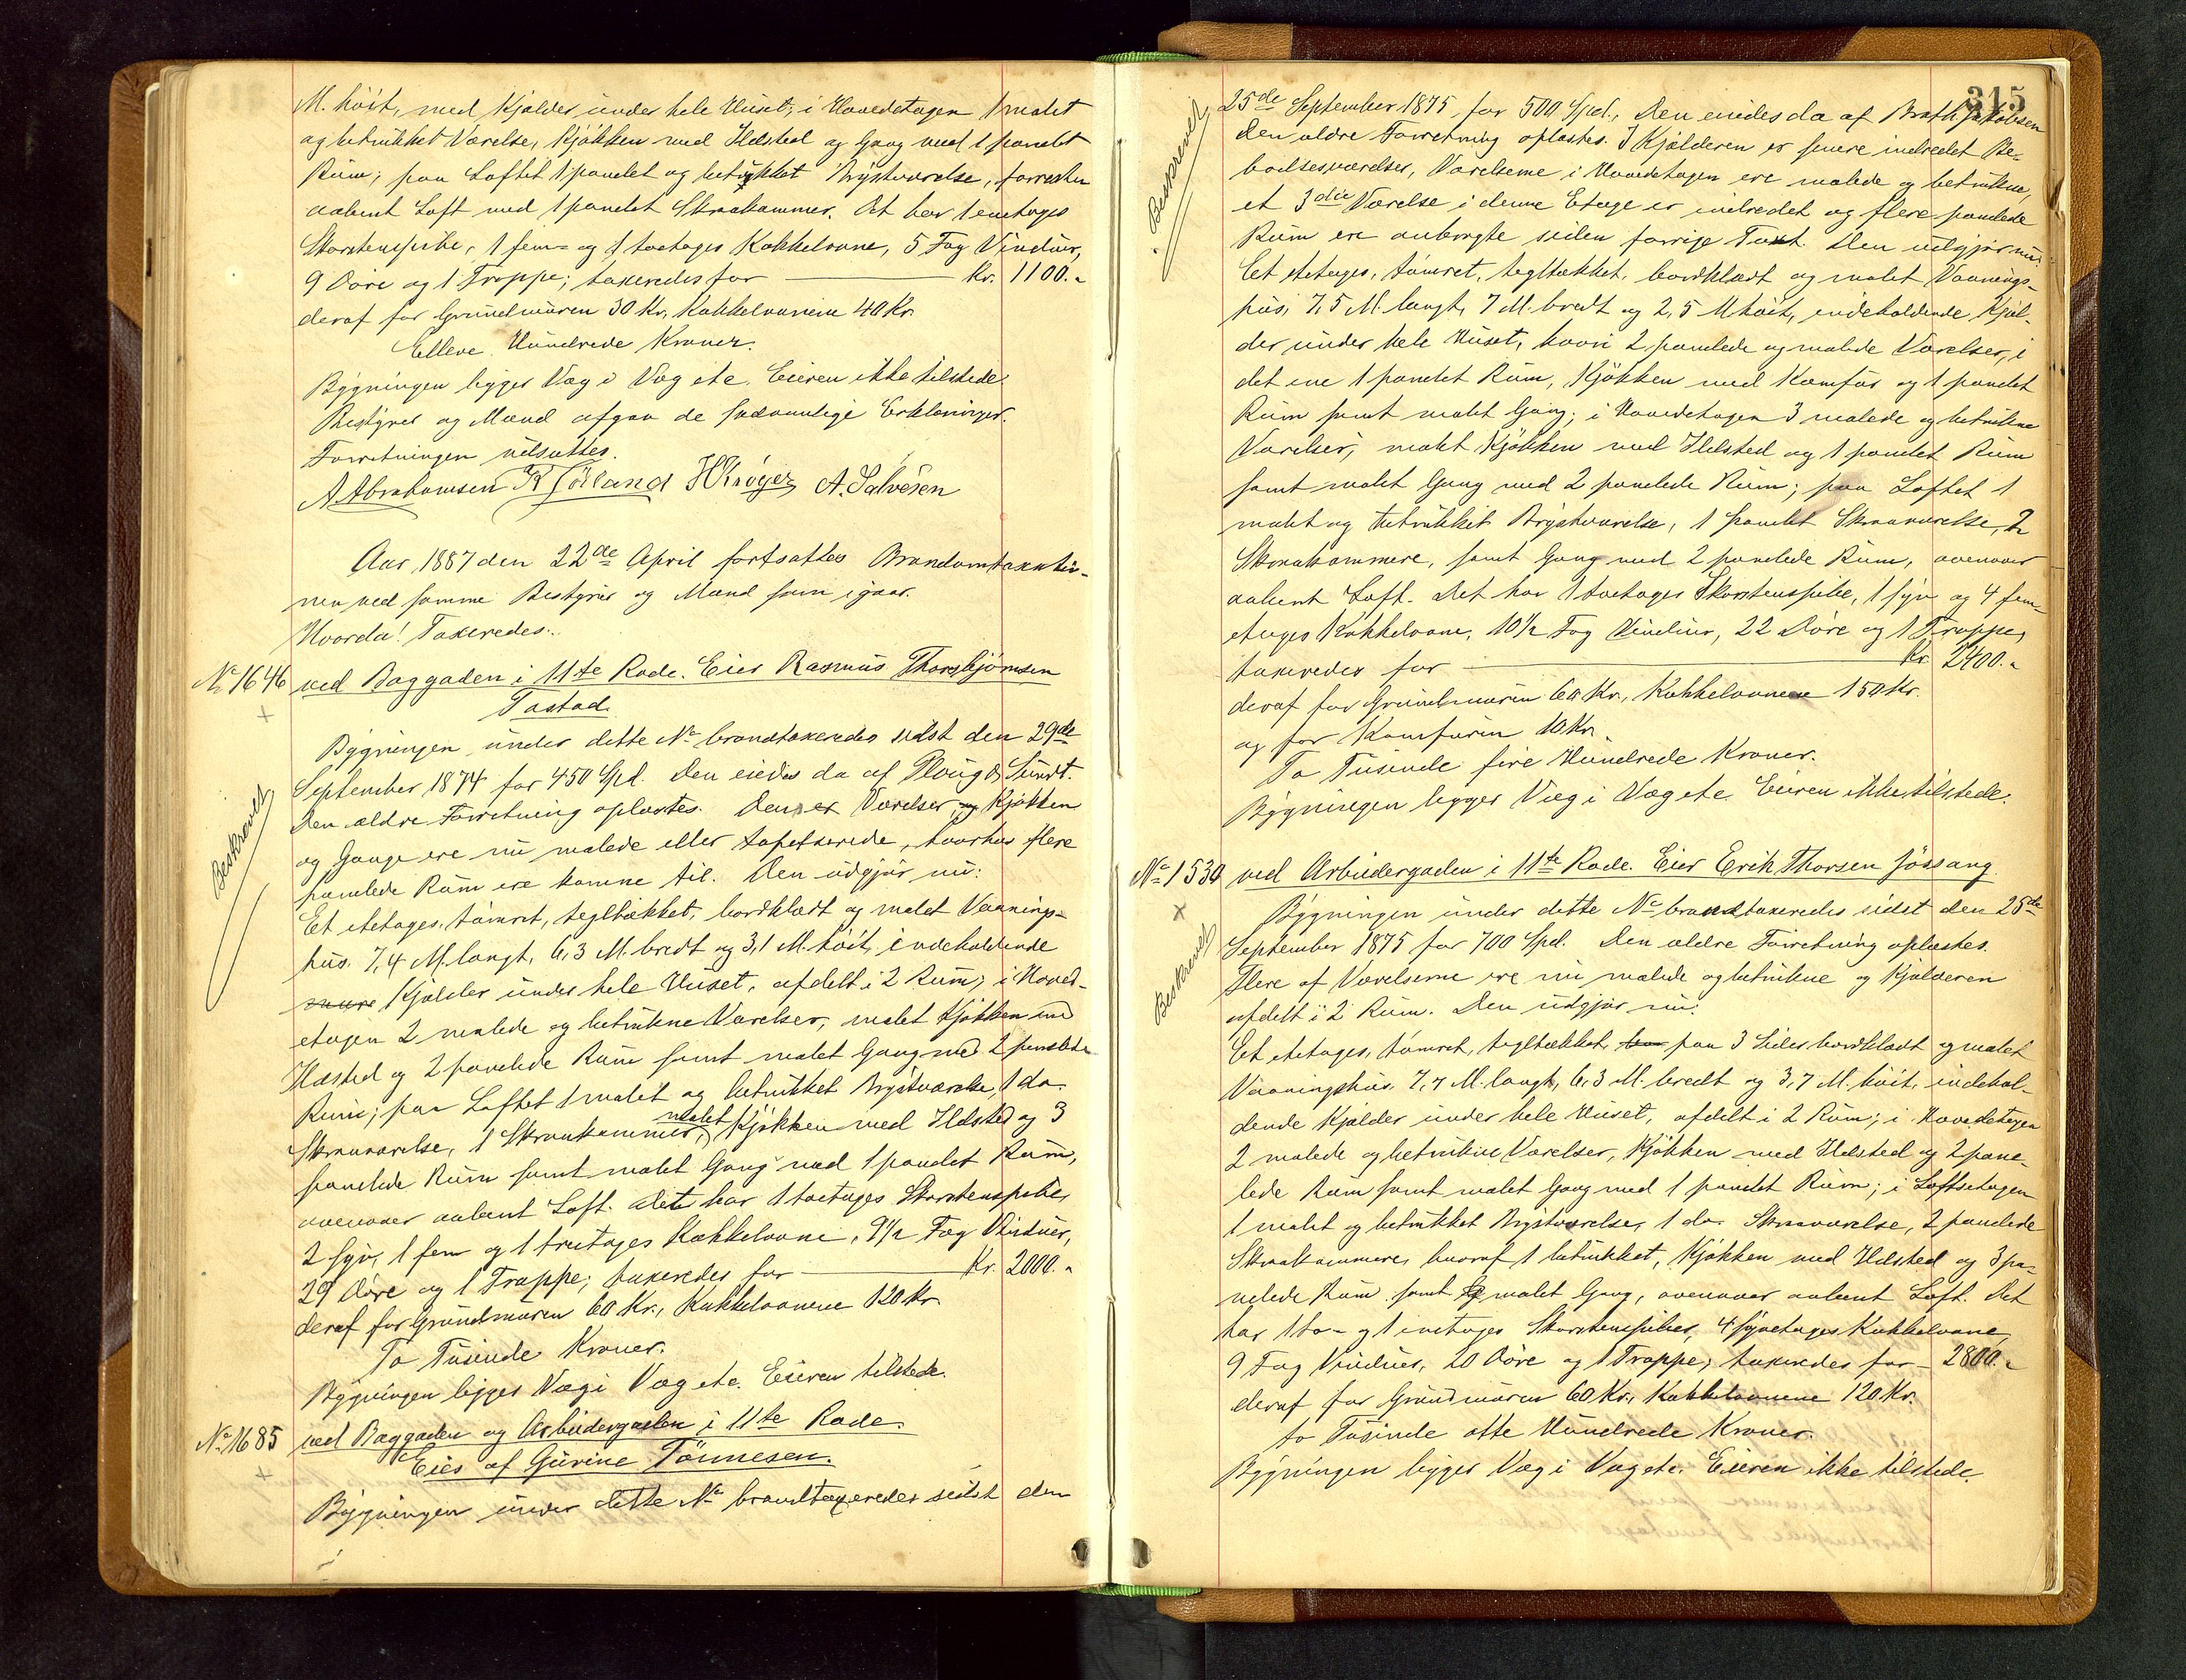 M. høit, med Kjælder under hele Huset; i Hovedetagen 1 malet
og betrukket Værelse, Kjøkken med Ildsted og Gang med 1 panelet
Rum; paa Loftet 1 panelet og betrukket Brystværelse, forresten
aabent Loft med 1 panelet Skraakammer. Det har 1 enetages
Skorstenspibe, 1 fem- og 1 toetages Kakkelovne, 5 Fag Vinduer,
9 Døre og 1 Trappe; taxeredes for — Kr. 1100.-
deraf for Grundmuren 30 Kr., Kakkelovnene 40 Kr.
Elleve Hundrede Kroner.
Bygningen ligger Væg i Væg etc. Eieren ikke tilstede.
Bestyrer og Mænd afgav de sædvanlige Erklæringer.
Forretningen udsattes.
A Abrahamsen K Jölland H Krøyer A. Salvesen
Aar 1887 den 22de April fortsattes Brandomtaxatio-
nen ved samme Bestyrer og Mænd som igaar.
Hvorda! Taxeredes:
No 1646 ved Baggaden i 11te Rode. Eier Rasmus Thorbjørnsen
Tastad.
Beskrevet
Bygningen under dette No brandtaxeredes sidst den 29de
September 1874 for 450 Spd. Den eiedes da af Ploug & Sundt.
Den ældre Forretning oplæstes. Værelser, og Kjøkken
og Gange ere nu malede eller tapetserede, hvorhos flere
panelede Rum ere komne til. Den udgjør nu:
Et etetages, tømret, tegltækket, bordklædt og malet Vaanings-
hus. 7,4 M. langt, 6,3 M. bredt og 3,1 M. høit, indeholdende
Kjælder under hele Huset, afdelt i 2 Rum; i Hoved-
etagen 2 malede og betrukne Værelser, malet Kjøkken med
Ildsted og 2 panelede Rum samt malet Gang med 2 panelede
Rum; paa Loftet 1 malet og betrukket Brystværelse, 1 do.
Skraaværelse, 1 Skraakammer, malet Kjøkken med Ildsted og 3
panelede Rum samt malet Gang med 1 panelet Rum,
ovenover aabent Loft. Det har 1 toetages Skorstenspibe,
2 syv, 1 fem og 1 treetages Kakkelovne, 9 1/2 Fag Vinduer,
29 Døre og 1 Trappe; taxeredes for — Kr. 2000.-
deraf for Grundmuren 60 Kr., Kakkelovnene 120 Kr
To Tusinde Kroner.
Bygningen ligger Væg i Væg etc. Eieren tilstede.
No 1685 ved Baggaden og Arbeidergaden i 11te Rode.
Eies af Gurine Tönnesen.
Bygningen under dette No brandtaxeredes sidst den
315
Beskrevet
25de September 1875 for 500 Spd., Den eiedes da af Jakobsen
Den ældre Forretning oplæstes. I Kjælderen er senere indredet Be-
boelsesværelser, Værelserne i Hovedetagen ere malede og betrukne,
et 3die Værelse i denne Etage er indredet og flere panelede
Rum ere anbragte siden forrige Taxt. Den udgjør nu:
Et etetages, tømret, tegltækket, bordklædt og malet Vaanings-
hus, 7,5 M. langt, 7 M. bredt og 2,5 M høit, indeholdende Kjæl-
der under hele Huset, hvori 2 panelede og malede Værelser, i
det ene 1 panelet Rum, Kjøkken med Komfur og 1 panelet
Rum samt malet Gang; i Hovedetagen 3 malede og betrukne
Værelser, malet Kjøkken med Ildsted og 1 panelet Rum
samt malet Gang med 2 panelede Rum; paa Loftet 1
malet og betrukket Brystværelse, 1 panelet Skraaværelse, 2
Skraakammere, samt Gang med 2 panelede Rum, ovenover
aabent Loft. Det har 1 toetages Skorstenspibe, 1 syv og 4 fem-
etages Kakkelovne, 10 1/2 Fag Vinduer, 22 Døre og 1 Trappe,
taxeredes for — Kr 2400.-
deraf for Grundmuren 60 Kr., Kakkelovnene 150 Kr.
og for Komfuren 10 Kr.
To Tusinde fire Hundrede Kroner.
Bygningen ligger Væg i Væg etc. Eieren ikke tilstede.
No 1530 ved Arbeidergaden i 11te Rode. Eier Erik Thorsen Jössang.
Beskrevet
Bygningen under dette No brandtaxeredes sidst den 25de
September 1875 for 700 Spd. Den ældre Forretning oplæstes.
Flere af Værelserne ere nu malede og betrukne og Kjælderen
afdelt i 2 Rum. Den udgjør nu:
Et etetages, tømret, tegltækket, paa 3 Sider bordklædt og malet
Vaaningshus. 7,7 M. langt, 6,3 M. bredt og 3,7 M. høit, indehol-
dende Kjælder under hele Huset, afdelt i 2 Rum; i Hovedetagen
2 malede og betrukne Værelser, Kjøkken med Ildsted og 2 pane-
lede Rum samt malet Gang med 1 panelet Rum; i Loftsetagen
1 malet og betrukket Brystværelse, 1 do. Skraaværelse, 2 panelede
Skraakammere, hvoraf 1 betrukket, Kjøkken med Ildsted og 3 pa-
nelede Rum samt malet Gang, ovenover aabent Loft. Det
har 1 to- og 1 enetages Skorstenspiber, 4 syvetages Kakkelovne,
9 Fag Vinduer, 20 Døre og 1 Trappe; taxeredes for — 2800.-
deraf for Grundmuren 60 Kr., Kakkelovnene 120 Kr.
to Tusinde otte Hundrede Kroner.
Bygningen ligger Væg i Væg etc. Eieren ikke tilstede.